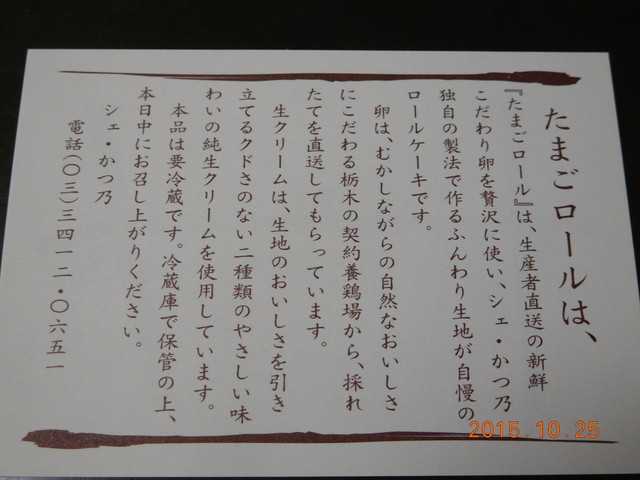 たまごロールは、
『たまごロール』は、生産者直送の新鮮
こだわり卵を贅沢に使い、シェ・かつ乃
独自の製法で作るふんわり生地が自慢の
ロールケーキです。
卵は、むかしながらの自然なおいしさ
にこだわる栃木の契約養鶏場から、採れ
たてを直送してもらっています。
生クリームは、生地のおいしさを引き
立てるクドさのない二種類のやさしい味
わいの純生クリームを使用しています。
本品は要冷蔵です。冷蔵庫で保管の上、
本日中にお召し上がりください。
シェ・かつ乃
電話(〇三)三四一二・〇六五一
2015.10.25